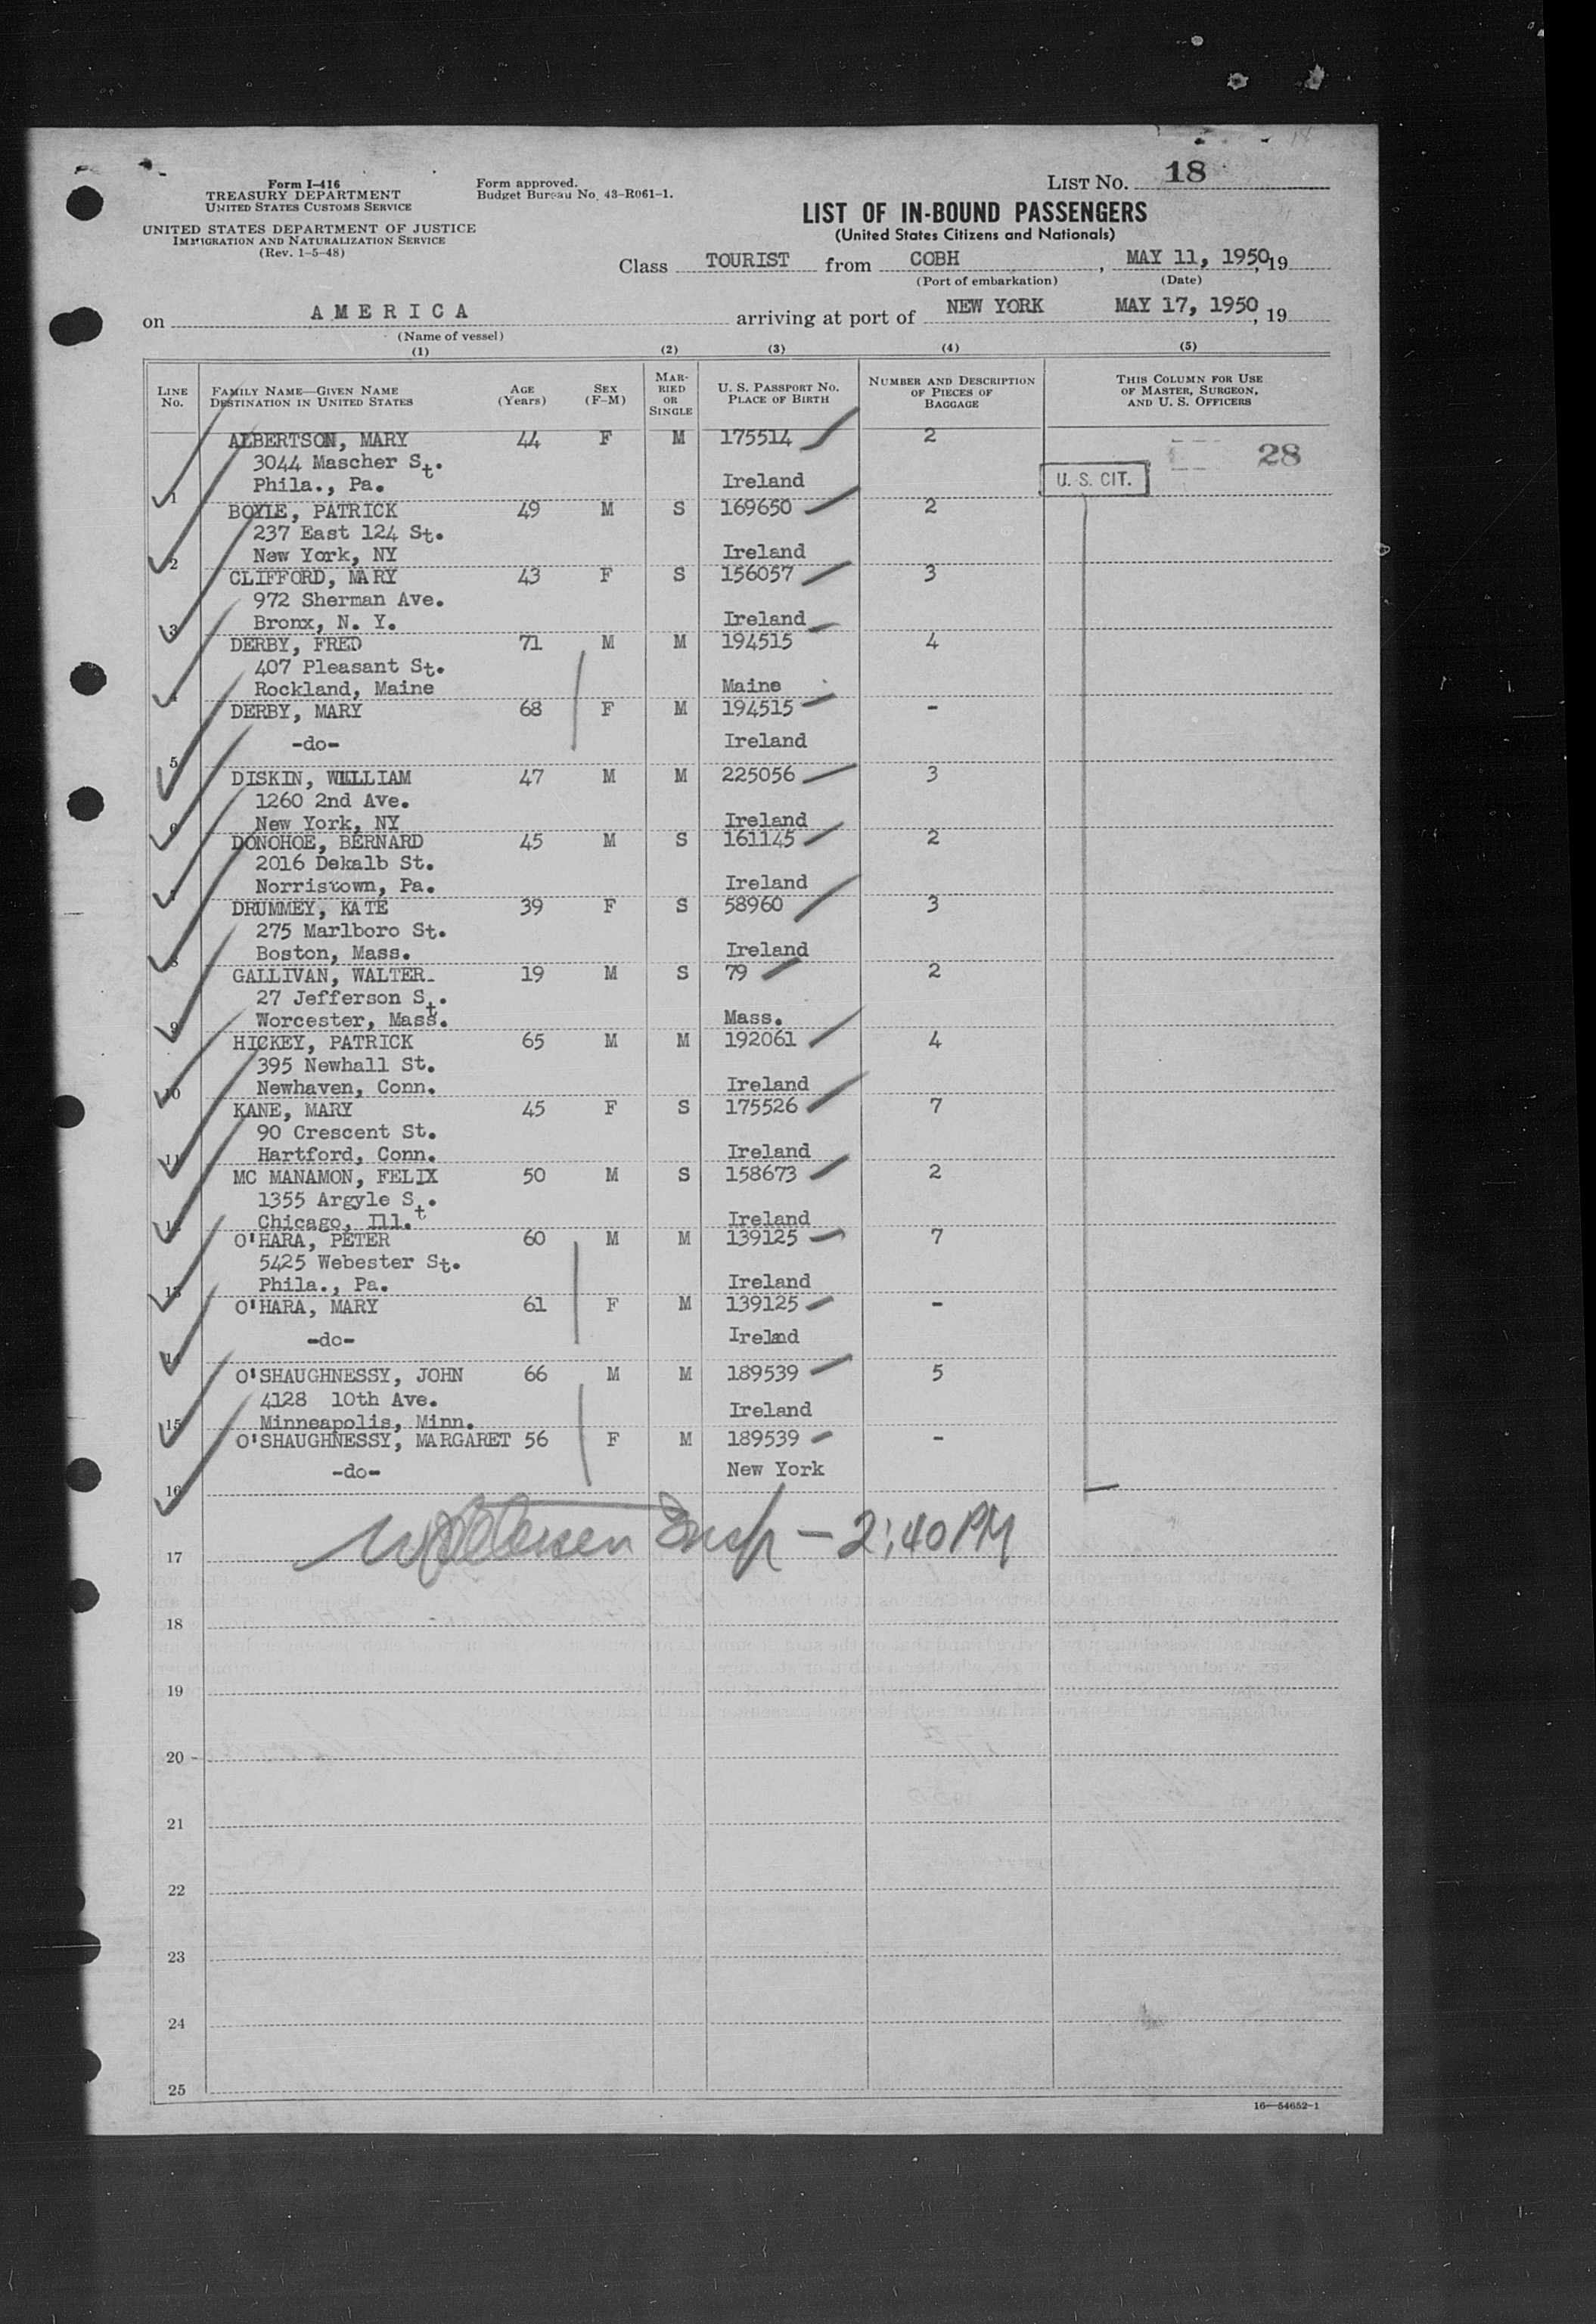 Form I-416
TREASURY DEPARTMENT
UNITED STATES CUSTOMS SERVICE
UNITED STATES DEPARTMENT OF JUSTICE
IMMIGRATION AND NATURALIZATION SERVICE
(Rev. 1-5-48)
Form approved.
Budget Bureau No. 43-R061-1.
LIST NO. 18
LIST OF IN-BOUND PASSENGERS
(United States Citizens and Nationals)
Class TOURIST from COBH, MAY 11, 1950, 19
(Port of embarkation) (Date)
on AMERICA arriving at port of NEW YORK MAY 17, 1950, 19
(Name of vessel)
(1) (2) (3) (4) (5)
LINE No. FAMILY NAME—GIVEN NAME DESTINATION IN UNITED STATES AGE (Years) SEX (F-M) MARRIED OR SINGLE U. S. PASSPORT NO. PLACE OF BIRTH NUMBER AND DESCRIPTION OF PIECES OF BAGGAGE THIS COLUMN FOR USE OF MASTER, SURGEON, AND U. S. OFFICERS
ALBERTSON, MARY 44 F M 175514 2
3044 Mascher St. 28
1 Phila., Pa. Ireland U. S. CIT.
BOYLE, PATRICK 49 M S 169650 2
237 East 124 St.
2 New York, NY Ireland
CLIFFORD, MARY 43 F S 156057 3
972 Sherman Ave.
3 Bronx, N. Y. Ireland
DERBY, FRED 71 M M 194515 4
407 Pleasant St.
4 Rockland, Maine Maine
DERBY, MARY 68 F M 194515 -
-do- Ireland
5
DISKIN, WILLIAM 47 M M 225056 3
1260 2nd Ave.
6 New York, NY Ireland
DONOHOE, BERNARD 45 M S 161145 2
2016 Dekalb St.
7 Norristown, Pa. Ireland
DRUMMEY, KATE 39 F S 58960 3
275 Marlboro St.
8 Boston, Mass. Ireland
GALLIVAN, WALTER 19 M S 79 2
27 Jefferson St.
9 Worcester, Mass. Mass.
HICKEY, PATRICK 65 M M 192061 4
395 Newhall St.
10 Newhaven, Conn. Ireland
KANE, MARY 45 F S 175526 7
90 Crescent St.
11 Hartford, Conn. Ireland
MC MANAMON, FELIX 50 M S 158673 2
1355 Argyle St.
12 Chicago, Ill. Ireland
O'HARA, PETER 60 M M 139125 7
5425 Webester St.
13 Phila., Pa. Ireland
O'HARA, MARY 61 F M 139125 -
-do- Irelnd
14
O'SHAUGHNESSY, JOHN 66 M M 189539 5
4128 10th Ave. Ireland
15 Minneapolis, Minn.
O'SHAUGHNESSY, MARGARET 56 F M 189539 -
-do- New York
16
Insp — 2:40 PM
17
18
19
20
21
22
23
24
25
16—54652-1